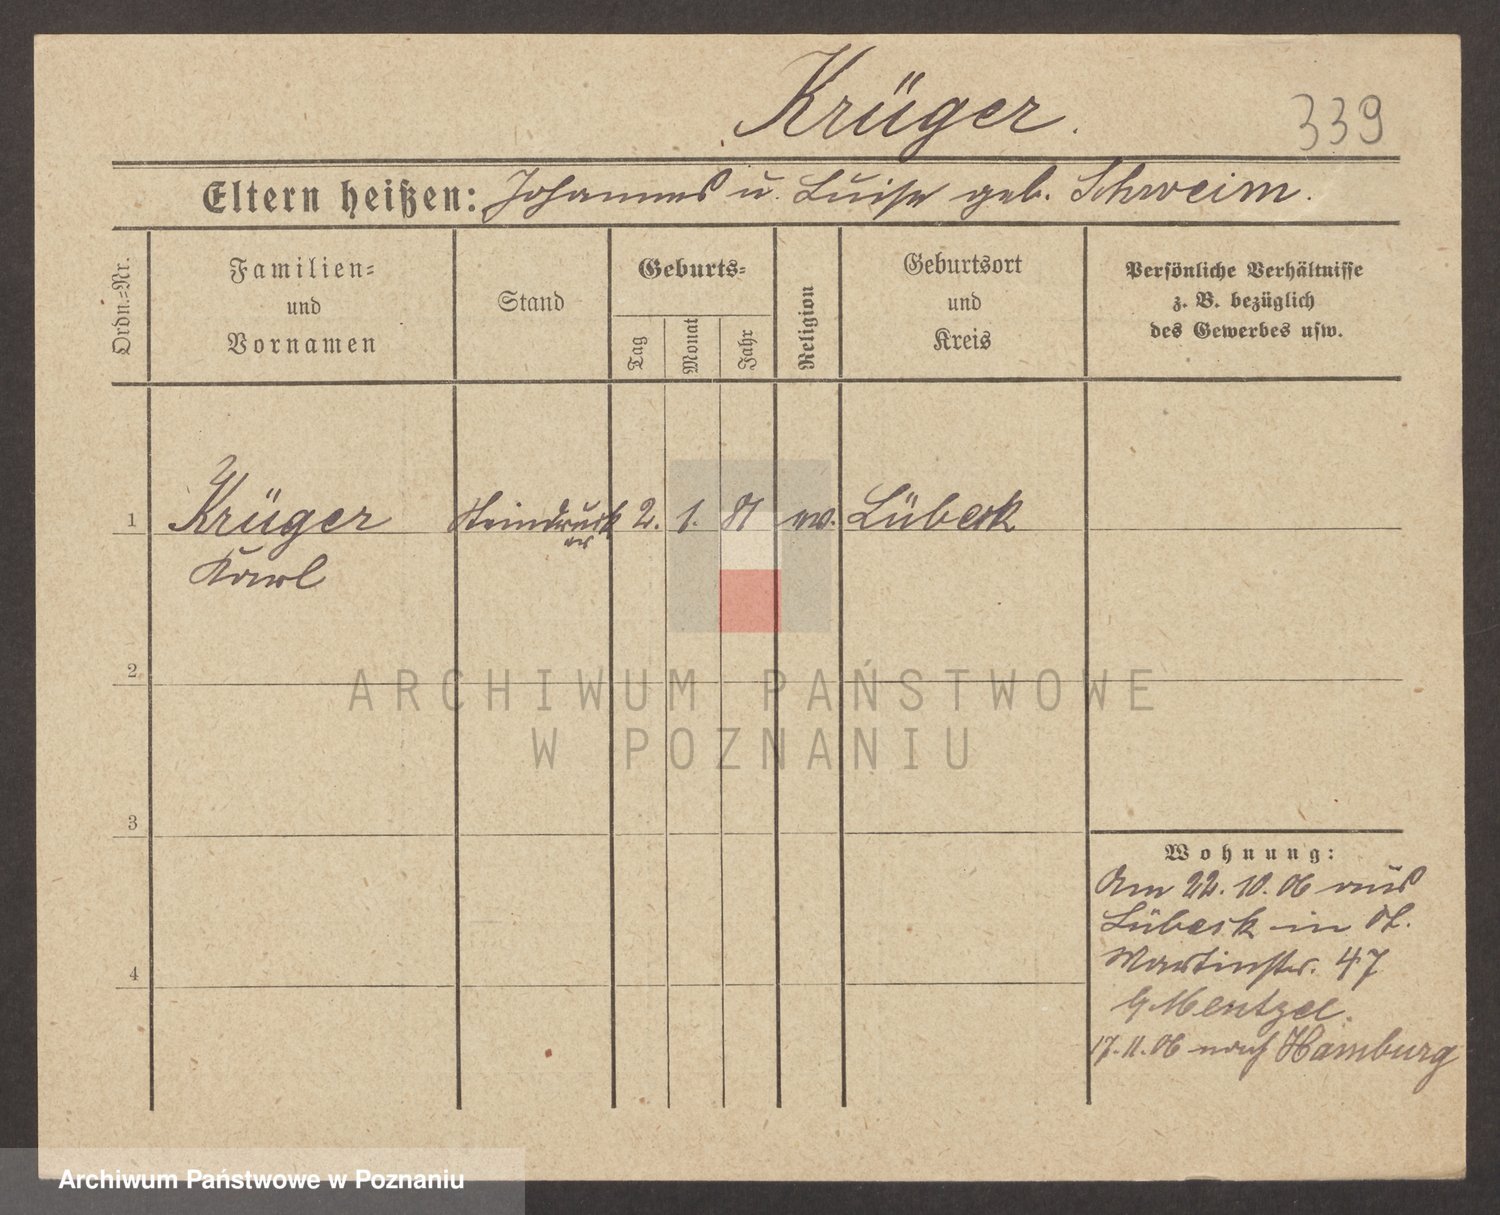 Krüger.
339
Eltern heißen: Johannes u. Luise geb. Schweim.
Ordn.=Nr.
Familien=
und
Vornamen
Stand
Geburts=
Tag
Monat
Jahr
Religion
Geburtsort
und
Kreis
Persönliche Verhältnisse
z. B. bezüglich
des Gewerbes usw.
1 Krüger Steindruck 2. 1. 81 ev. Lübeck
er
Karl
2
3
4
Wohnung:
Am 22.10.06 aus
Lübeck in St.
Martinstr. 47
b/ Mentzel.
17.11.06 nach Hamburg
ARCHIWUM PAŃSTWOWE
W POZNANIU
Archiwum Państwowe w Poznaniu